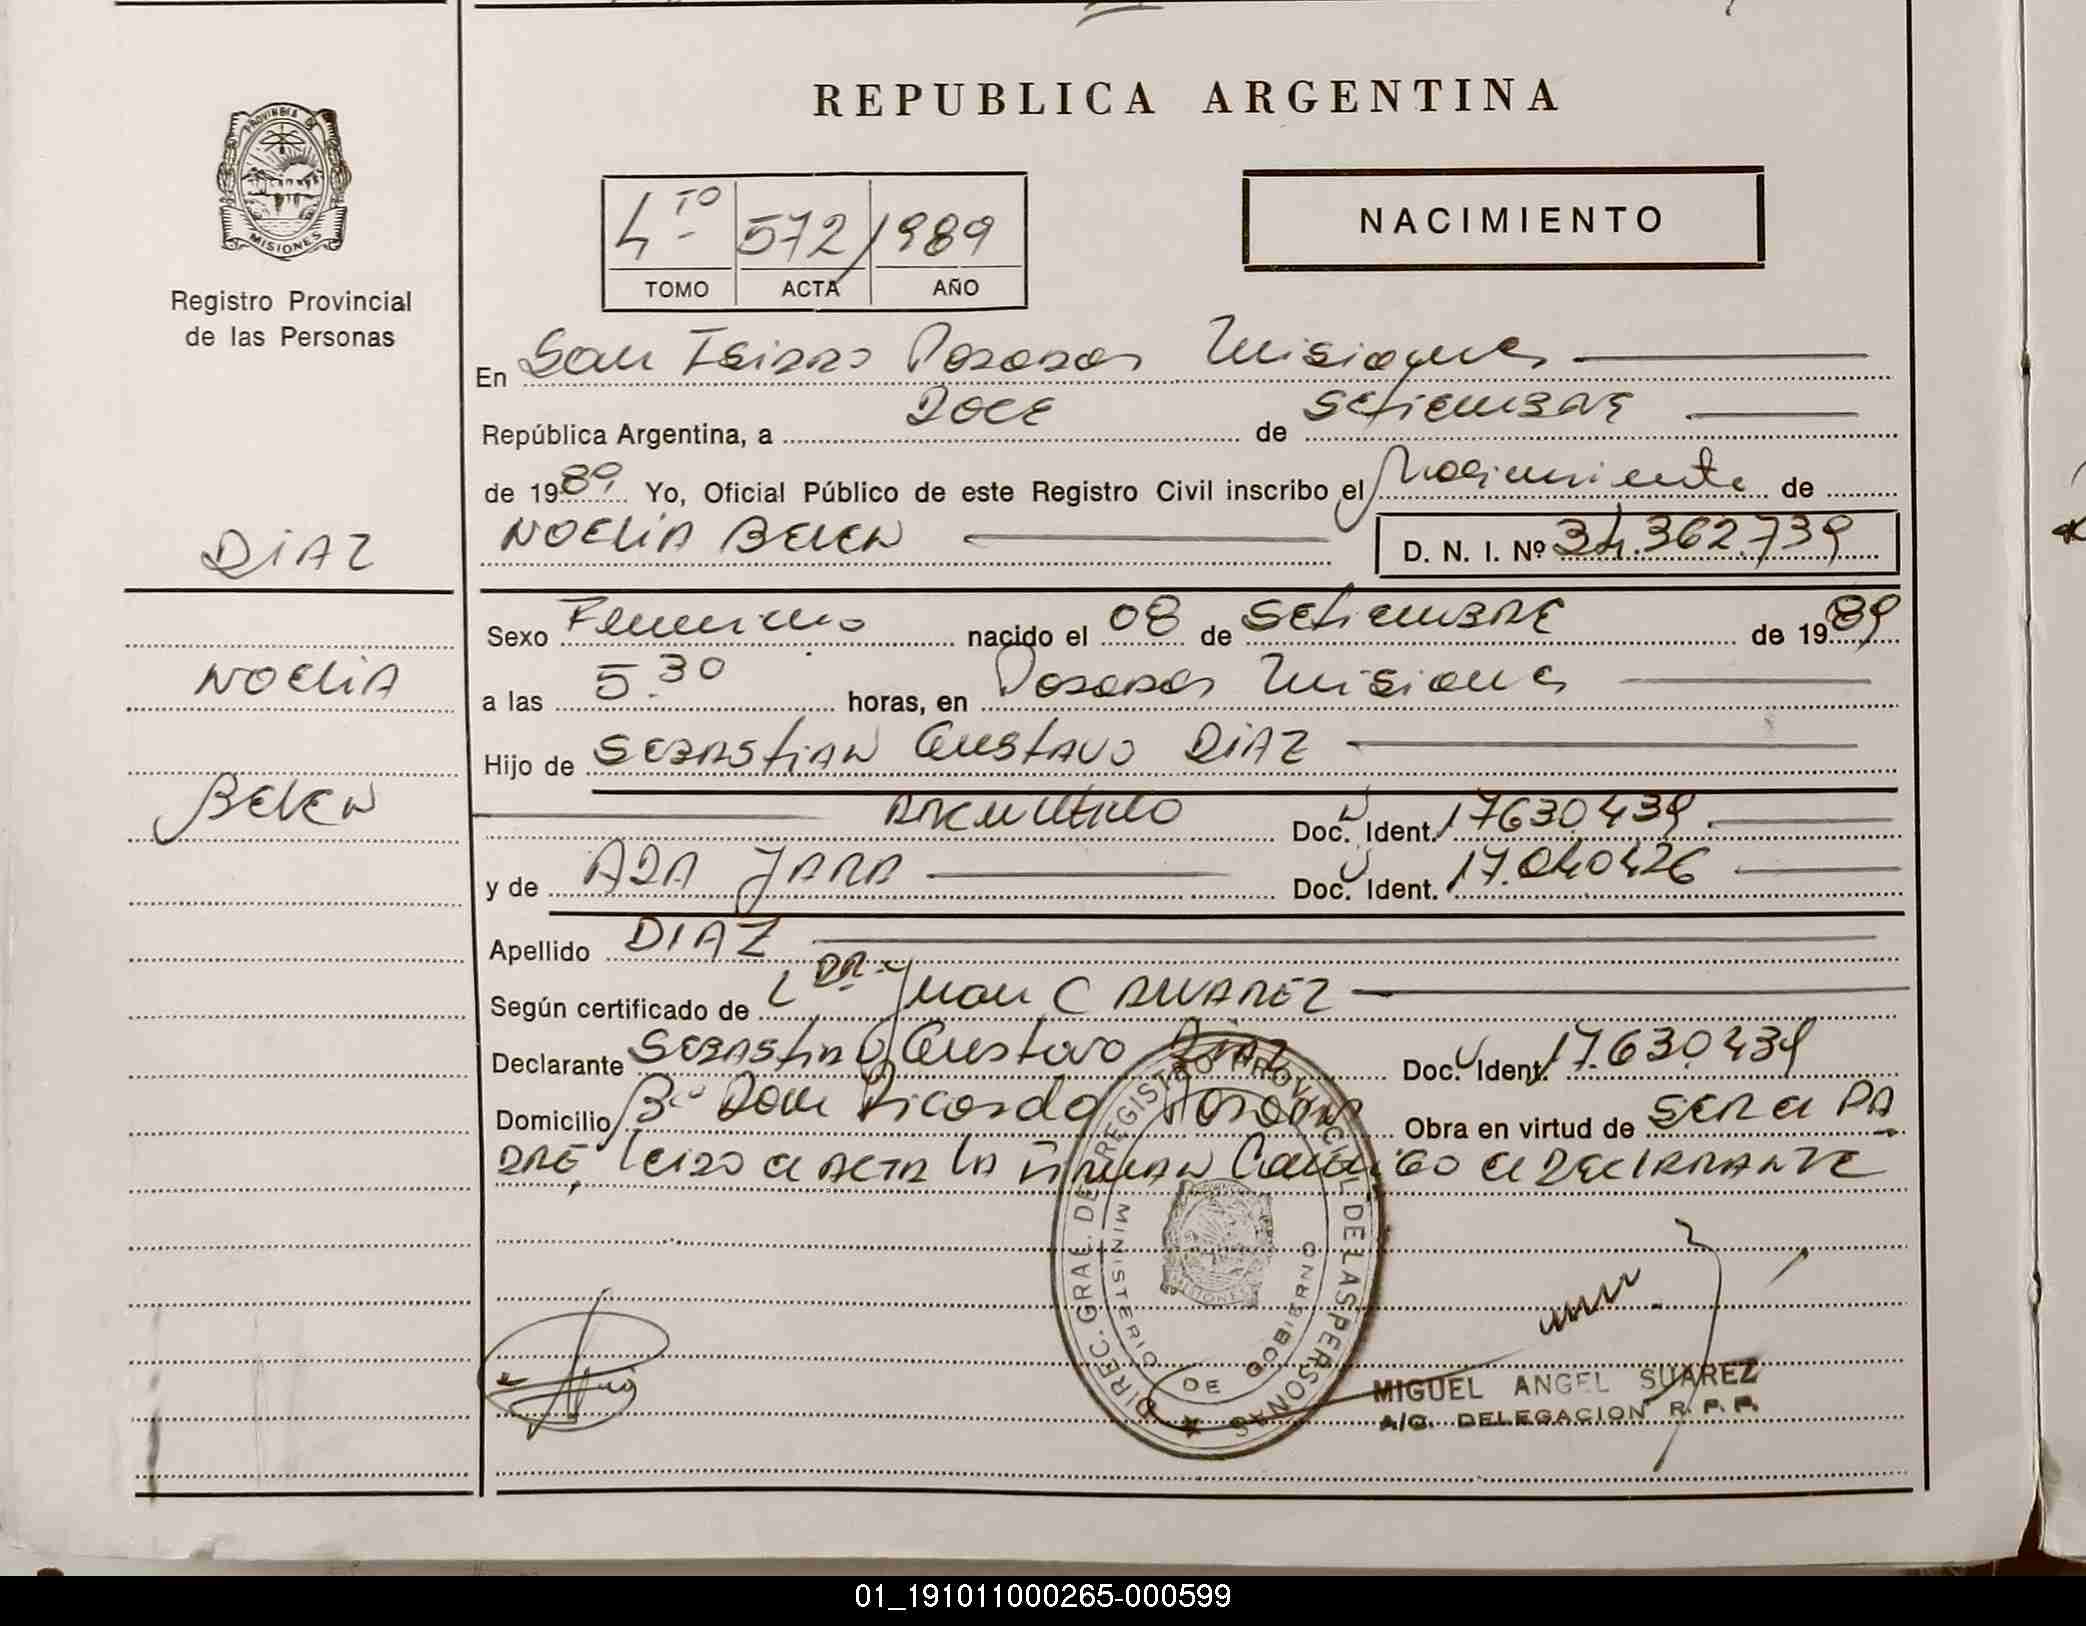 REPUBLICA ARGENTINA
PROVINCIA DE
MISIONES
Registro Provincial
de las Personas
4TO 572 1989
TOMO ACTA AÑO
NACIMIENTO
En San Isidro Posadas Misiones
República Argentina, a DOCE de Setiembre
de 1989 Yo, Oficial Público de este Registro Civil inscribo el Nacimiento de
NOELIA BELEN D. N. I. Nº 34.362.739
DIAZ
NOELIA
BELEN
Sexo Femenino nacido el 08 de Setiembre de 1989
a las 5.30 horas, en Posadas Misiones
Hijo de SEBASTIAN Gustavo DIAZ
ARGENTINO Doc. Ident. 17630439
y de ADA JARA Doc. Ident. 17.040426
Apellido DIAZ
Según certificado de DR. Juan C ALVAREZ
Declarante SEBASTIAN Gustavo DIAZ Doc. Ident. 17.630.439
Domicilio Bº Don Ricardo Posadas Obra en virtud de SER el PA
DRE, leido el ACTA LA FIRMAN Conmigo el DECLARANTE
DIREC. GRAL. DE REGISTRO PROVINCIAL DE LAS PERSONAS
MINISTERIO DE GOBIERNO
MISIONES
MIGUEL ANGEL SUAREZ
A/C. DELEGACION R. P. P.
01_191011000265-000599